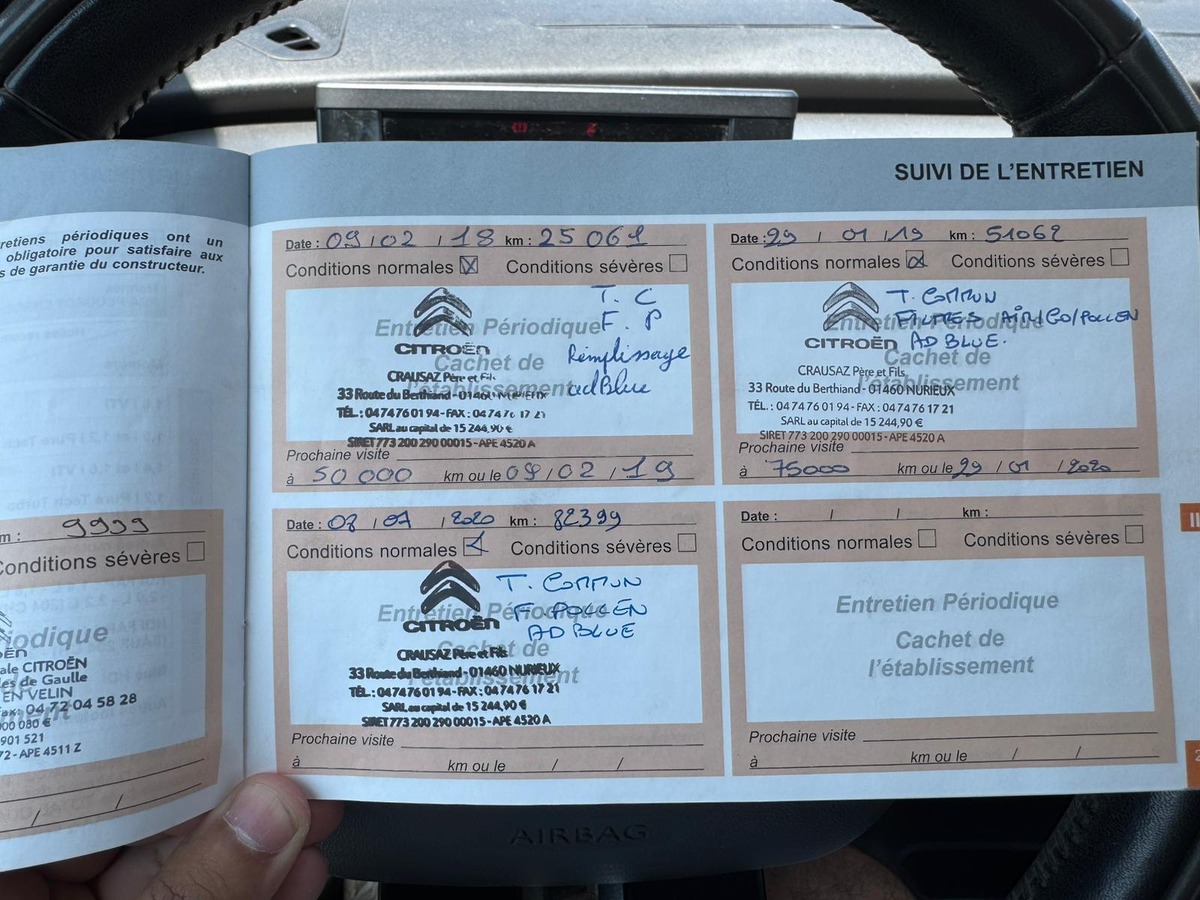 SUIVI DE L'ENTRETIEN
retiens périodiques ont un
obligatoire pour satisfaire aux
s de garantie du constructeur.
m : 9999
Conditions sévères
iodique
ale CITROËN
les de Gaulle
EN VELIN
fax: 04 72 04 58 28
000 080 €
901 521
72 - APE 4511 Z
/ /
Date : 09 / 02 / 18 km : 25 061
Conditions normales Conditions sévères
T. C
F. P
Remplissage
adBlue
Entretien Périodique
Cachet de
l'établissement
CITROËN
CRAUSAZ Père et Fils
33 Route du Berthiand - 01460 NURIEUX
TÉL. : 04 74 76 01 94 - FAX : 04 74 76 17 21
SARL au capital de 15 244,90 €
SIRET 773 200 290 00015 - APE 4520 A
Prochaine visite
à 50 000 km ou le 09 / 02 / 19
Date : 29 / 01 / 19 km : 51062
Conditions normales Conditions sévères
T. COMMUN
FILTRES AIR/GO/POLLEN
AD BLUE.
Entretien Périodique
Cachet de
l'établissement
CITROËN
CRAUSAZ Père et Fils
33 Route du Berthiand - 01460 NURIEUX
TÉL. : 04 74 76 01 94 - FAX : 04 74 76 17 21
SARL au capital de 15 244,90 €
SIRET 773 200 290 00015 - APE 4520 A
Prochaine visite
à 75000 km ou le 29 / 01 / 2020
Date : 07 / 07 / 2020 km : 82399
Conditions normales Conditions sévères
T. COMMUN
F. POLLEN
AD BLUE
Entretien Périodique
Cachet de
l'établissement
CITROËN
CRAUSAZ Père et Fils
33 Route du Berthiand - 01460 NURIEUX
TÉL. : 04 74 76 01 94 - FAX : 04 74 76 17 21
SARL au capital de 15 244,90 €
SIRET 773 200 290 00015 - APE 4520 A
Prochaine visite
à km ou le / /
Date : / / km :
Conditions normales Conditions sévères
Entretien Périodique
Cachet de
l'établissement
Prochaine visite
à km ou le / /
AIRBAG